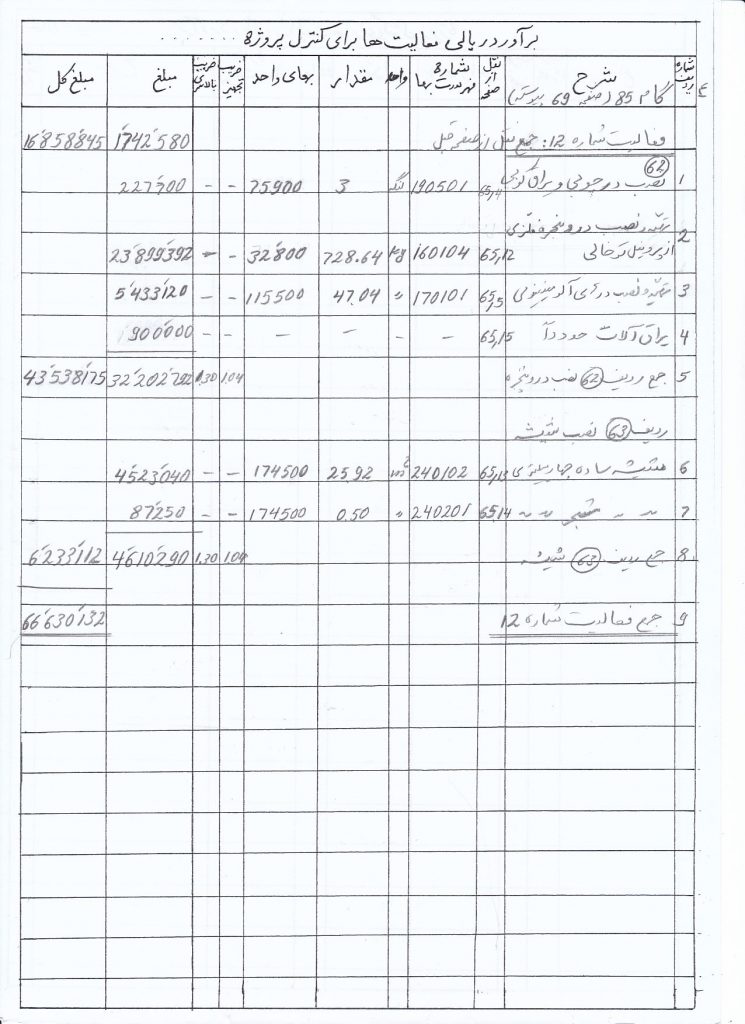 برآورد ریالی فعالیت ها برای کنترل پروژه
شماره ردیف شرح نقل از صفحه شماره فهرست بها واحد مقدار بهای واحد ضریب تجهیز ضریب بالاسری مبلغ مبلغ کل
گام 85 (صفحه 69 پیوست)
فعالیت شماره 12: جمع نقل از صفحه قبل 1742580 16'858'845
62
1 نصب در چوبی و یراق کوبی 65,4 190501 لنگه 3 75900 - - 227700
2 تهیه و نصب در و پنجره فلزی
از پروفیل تو خالی 65,12 160104 kg 728.64 32800 - - 23'899'392
3 تهیه و نصب در های آلومینیومی 65,5 170101 〃 47.04 115500 - - 5'433'120
4 یراق آلات 65,15 - - - - - - 900'000
5 جمع ردیف 62 نصب در و پنجره 1.04 1.30 32'202'792 43'538'175
ردیف 63 نصب شیشه
6 شیشه ساده چهار میلیمتری 65,13 240102 m² 25.92 174500 - - 4'523'040
7 〃 〃 مشجر 〃 〃 65,14 240201 〃 0.50 174500 - - 87'250
8 جمع ردیف 63 شیشه 1.04 1.30 4'610'290 6'233'112
9 جمع فعالیت شماره 12 66'630'132